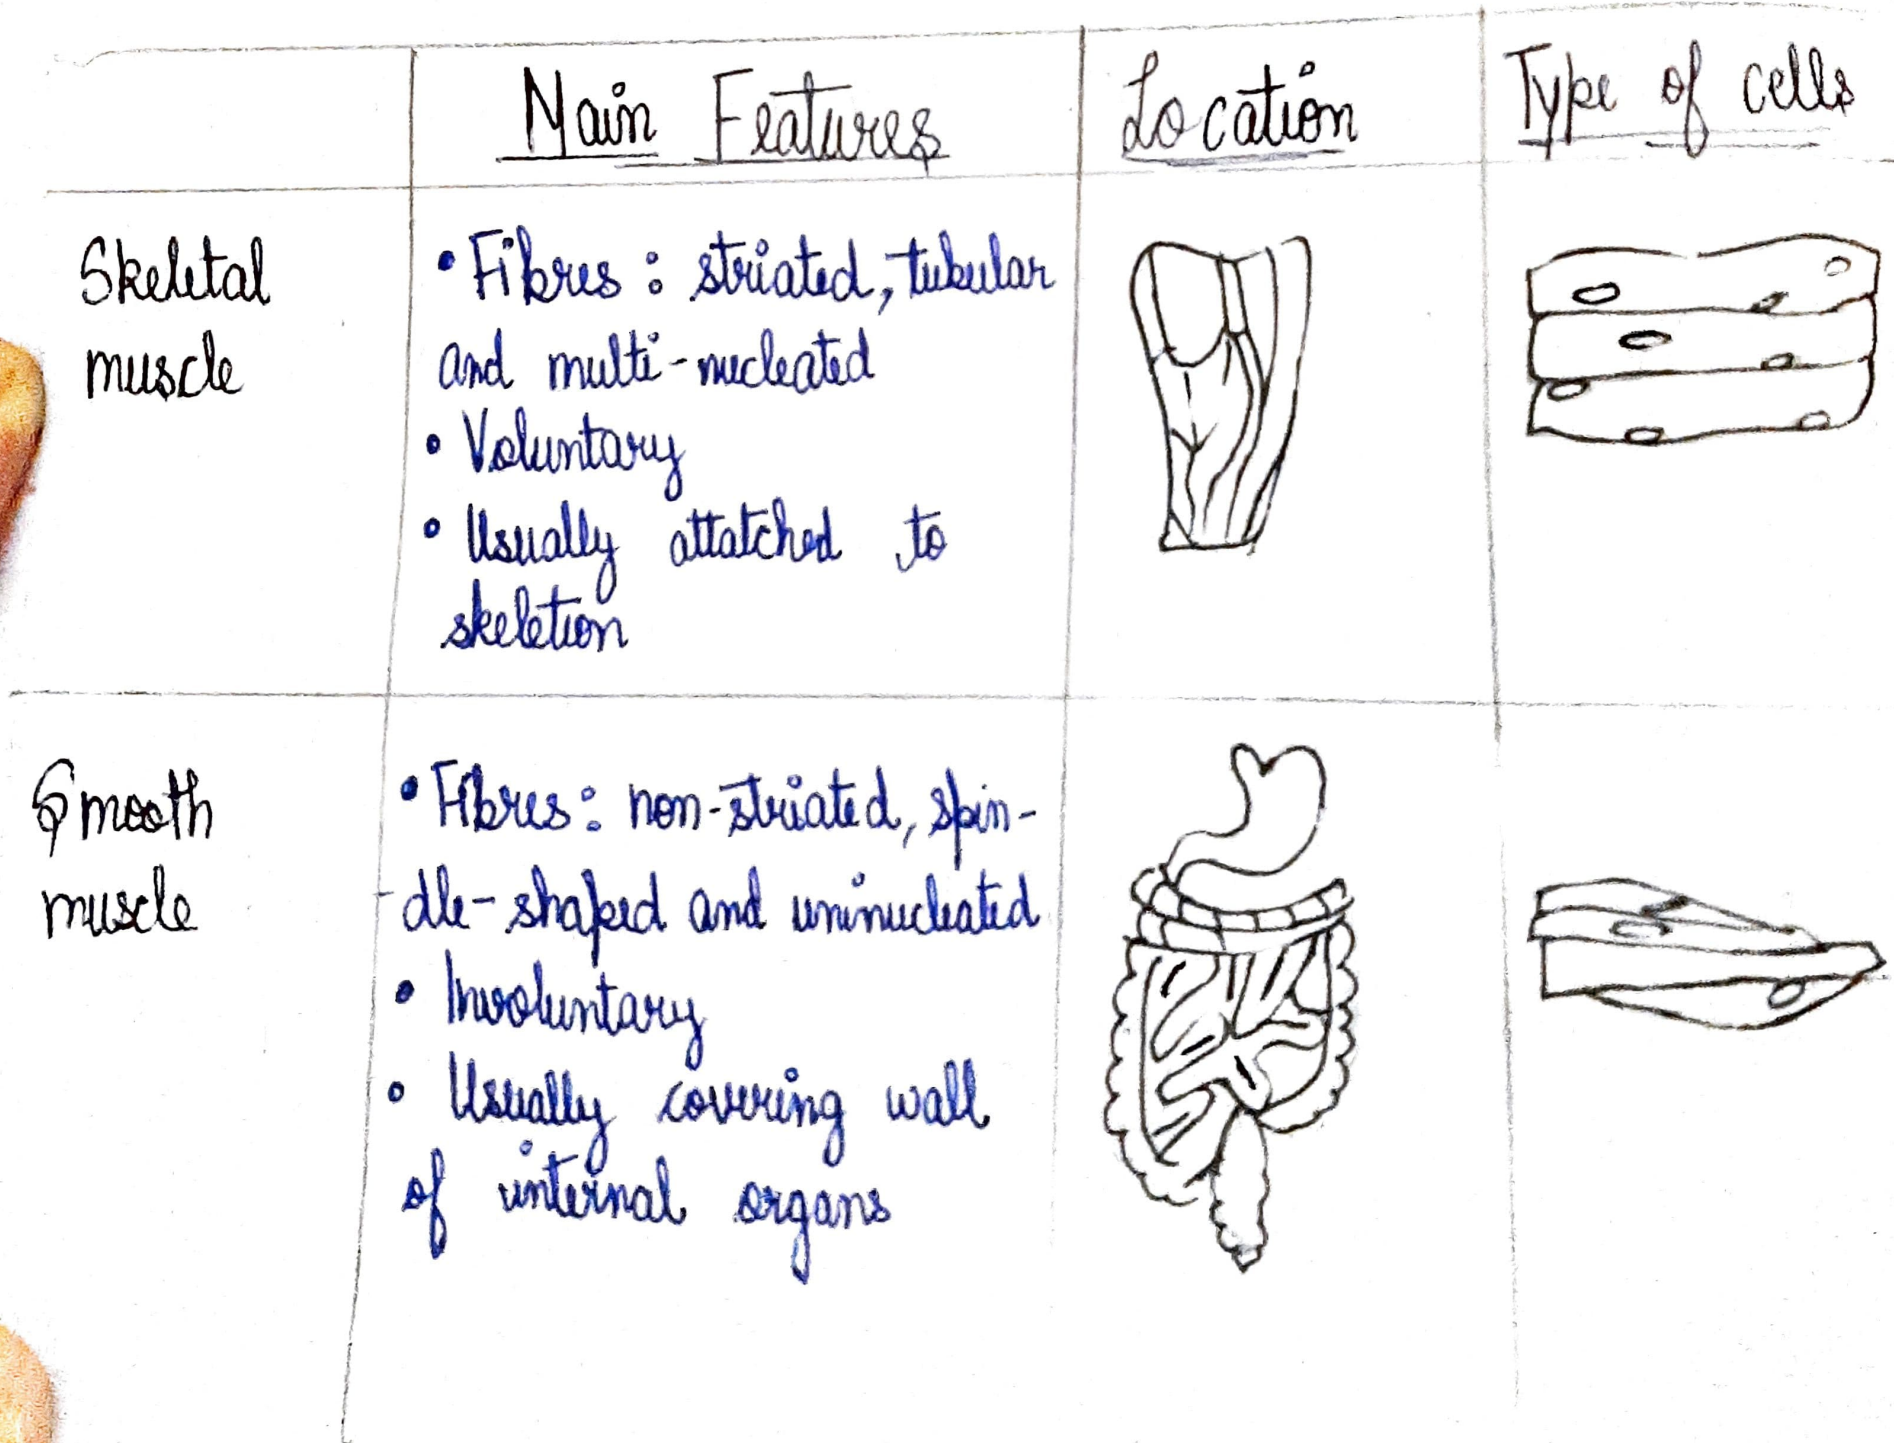 Main Features Location Type of cells
Skeletal
muscle
• Fibres : striated, tubular
and multi-nucleated
• Voluntary
• Usually attatched to
skeletion
Smooth
muscle
• Fibres : non-striated, spin-
-dle-shaped and uninucleated
• Involuntary
• Usually covering wall
of internal organs